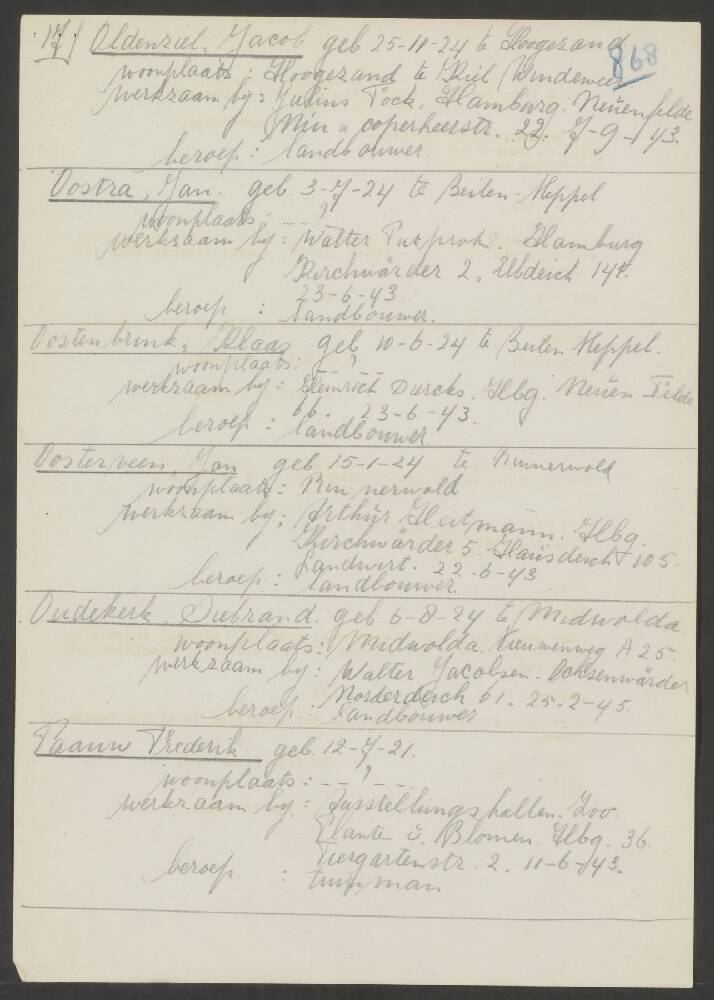 17/ Oldenziel, Jacob geb 25-11-24 te Hoogezand
868
woonplaats: Hoogezand te Kiel Windeweer
werkzaam by: Julius Fock, Hamburg. Neuenfelde
Min u coperheerstr. 22. 7-9-43.
beroep: landbouwer
Oostra, Jan. geb. 3-7-24 te Beilen-Meppel
woonplaats: - - ? - -
werkzaam by = Walter Hamburg
Kirchwärder 2, Elbdeich 144.
23-6-43
beroep : landbouwer.
Oostenbrink, Klaas geb 10-6-24 te Beilen Meppel.
woonplaats: - - ? - -
werkzaam by = Heinrich Diercks. Hbg. Neuen-Felde
66. 23-6-43.
beroep: landbouwer
Oosterveen, Jan geb 15-1-24 te Ruinerwold
woonplaats: Ruinerwold
werkzaam by: Arthur Heitmann. Hbg.
Kirchwärder 5. Hausdeich 105.
Landwirt. 22-6-43
beroep: landbouwer.
Oudekerk. Siebrand. geb 6-8-24 te Midwolda
woonplaats: Midwolda. Nieuwenweg A 25.
werkzaam by: Walter Jacobsen. Ochsenwärder
Norderdeich 61. 25-2-45.
beroep: landbouwer
Paauw Frederik geb. 12-7-21.
woonplaats: - - ? - -
werkzaam by: = Ausstellungshallen. Zoo.
Planten u. Blomen. Hbg. 36.
Tiergartenstr. 2. 11-6-43.
beroep : tuinman